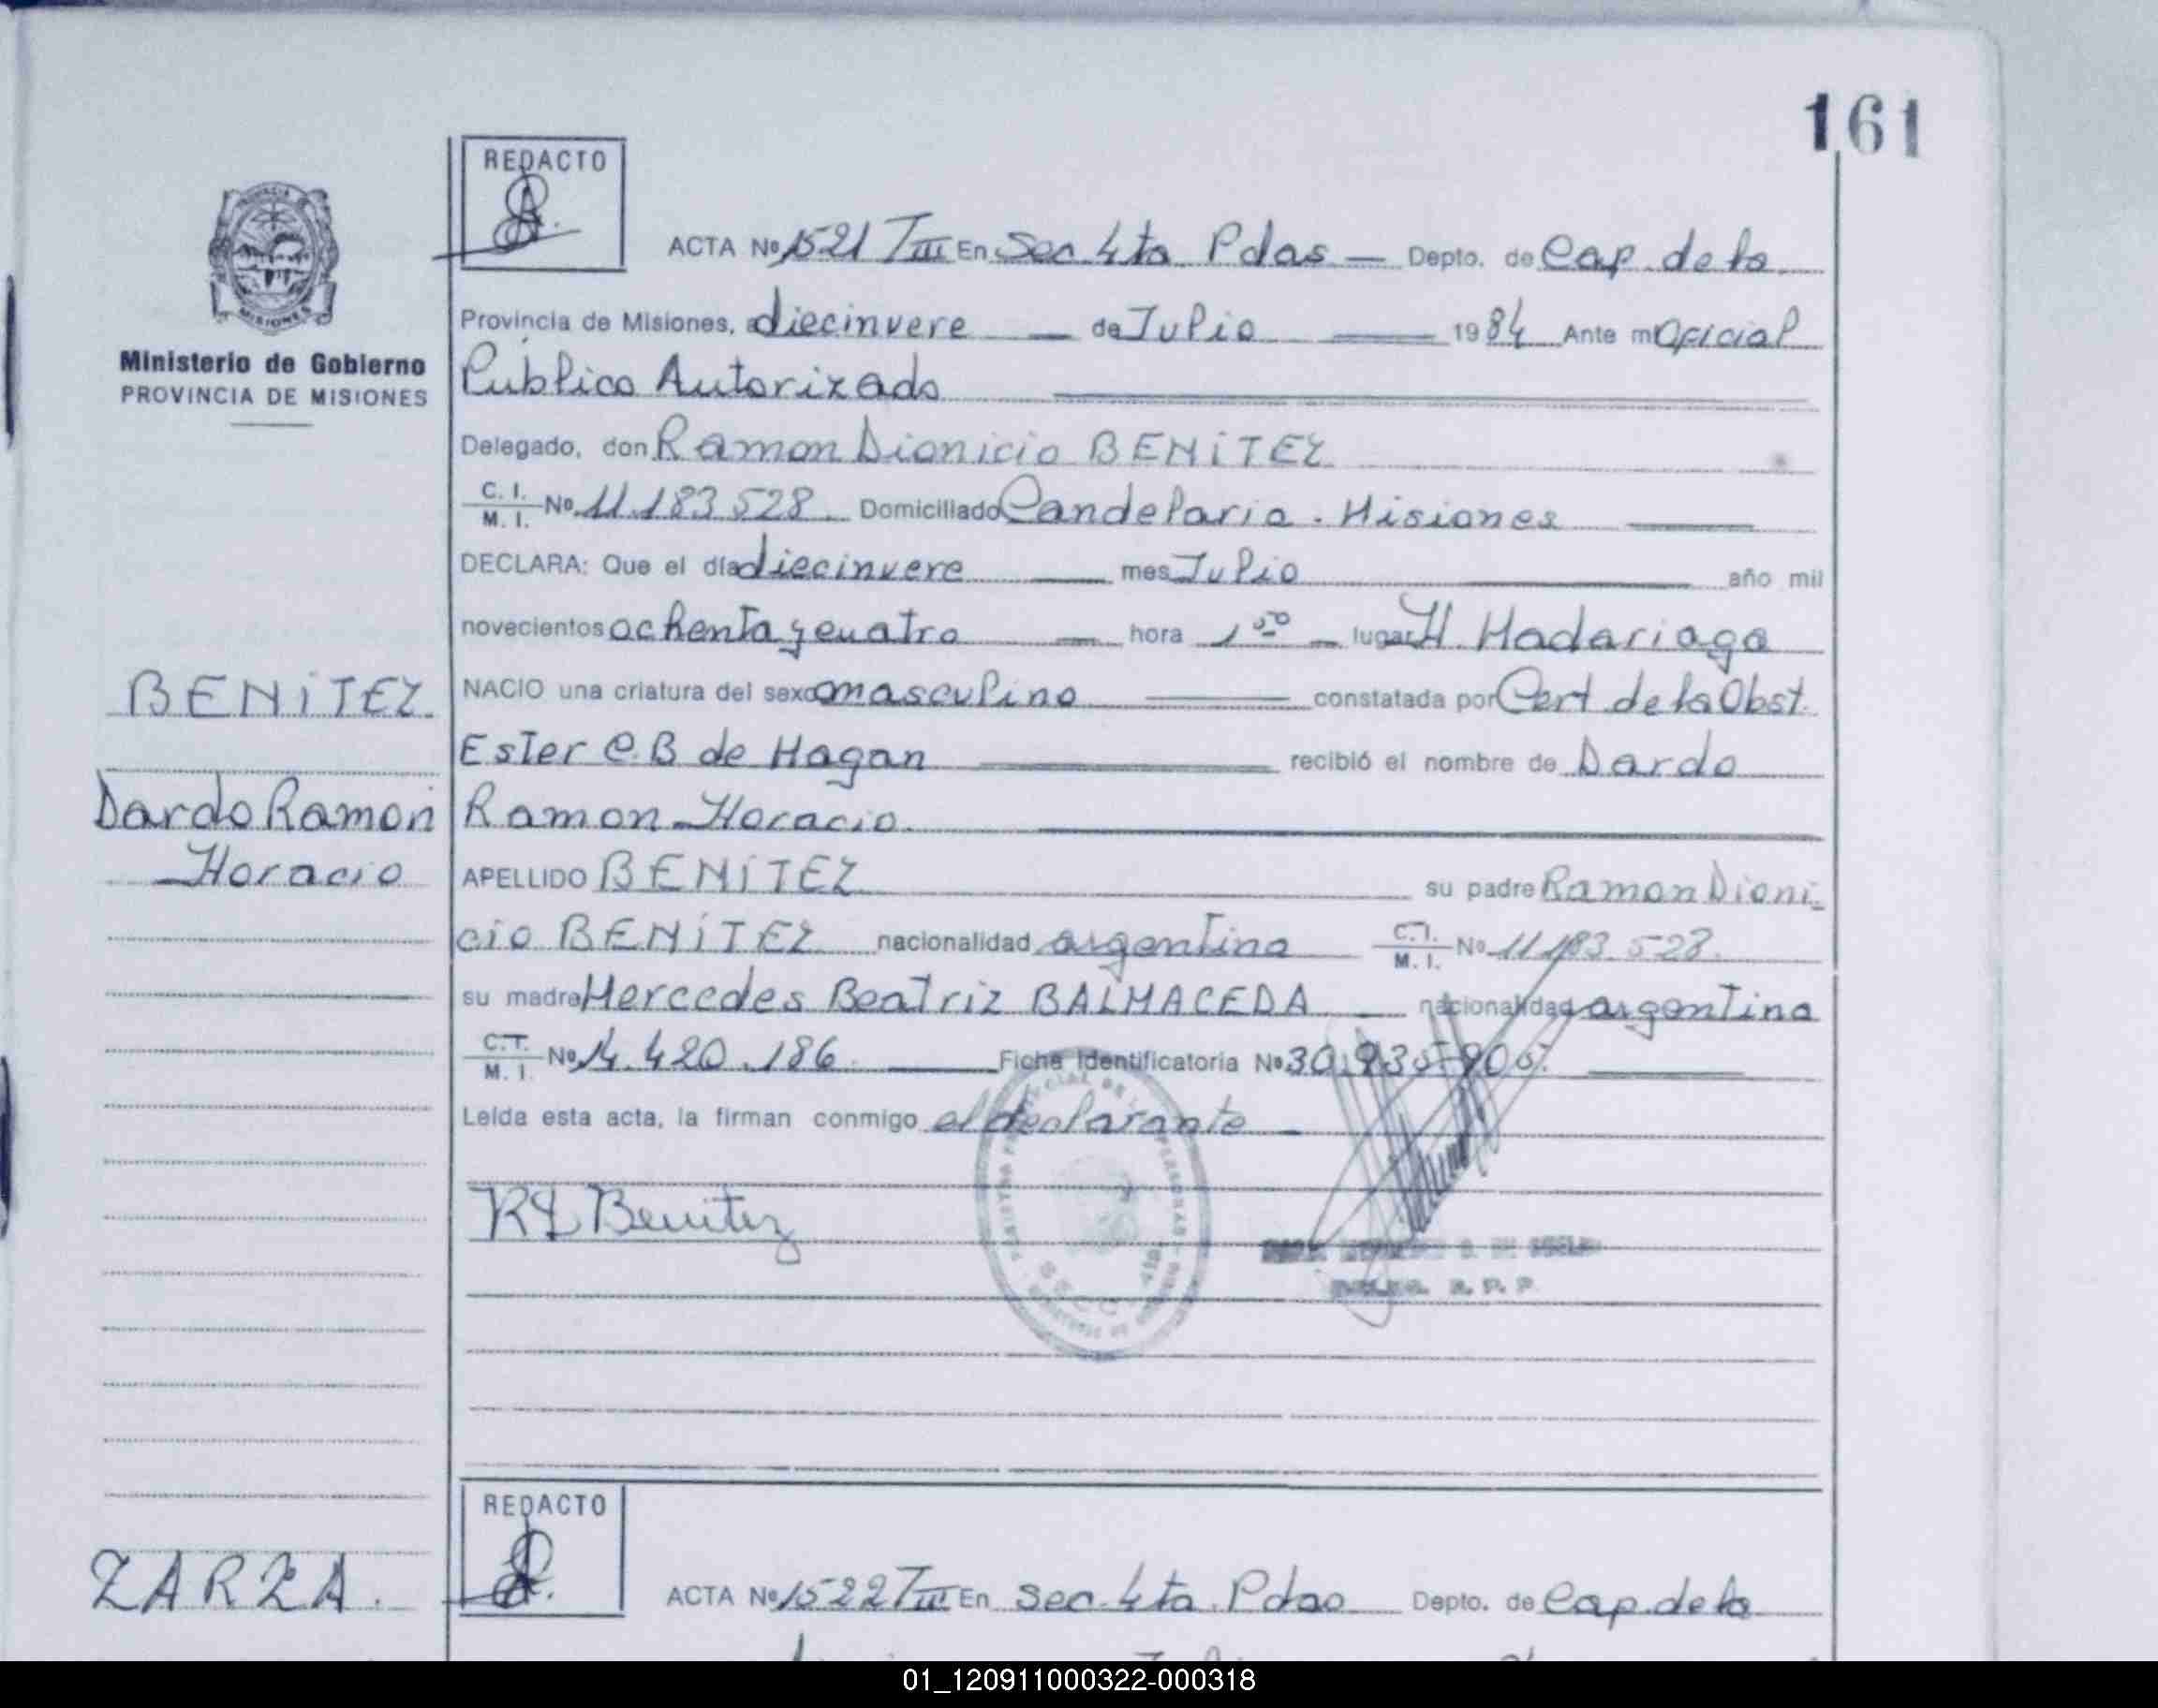 161
REDACTO
ACTA Nº 1521 TIII En Sec. 4ta Pdas — Depto. de Cap. de la
Provincia de Misiones, a diecinueve — de Julio — 1984 Ante mi Oficial
Ministerio de Gobierno
PROVINCIA DE MISIONES
Público Autorizado
Delegado, don Ramon Dionicio BENITEZ
C. I. M. I. Nº 11.183.528. Domiciliado Candelaria. Misiones
DECLARA: Que el día diecinueve — mes Julio — año mil
novecientos ochenta y cuatro — hora 1 — lugar H. Madariaga
BENITEZ
NACIO una criatura del sexo masculino — constatada por Cert de la Obst.
Ester C.B de Hagan — recibió el nombre de Dardo
Dardo Ramon
Horacio
Ramon Horacio.
APELLIDO BENITEZ su padre Ramon Dioni-
cio BENITEZ nacionalidad argentina C.I. M. I. Nº 11.183.528.
su madre Mercedes Beatriz BALMACEDA — nacionalidad argentina
C.I. M. I. Nº 14.420.186. — Ficha Identificatoria Nº 30.935.905.
Leída esta acta, la firman conmigo el declarante —
Benitez
R. P. P.
REDACTO
ZARZA.
ACTA Nº 1522 TIII En Sec. 4ta. Pdas Depto. de Cap. de la
01_120911000322-000318